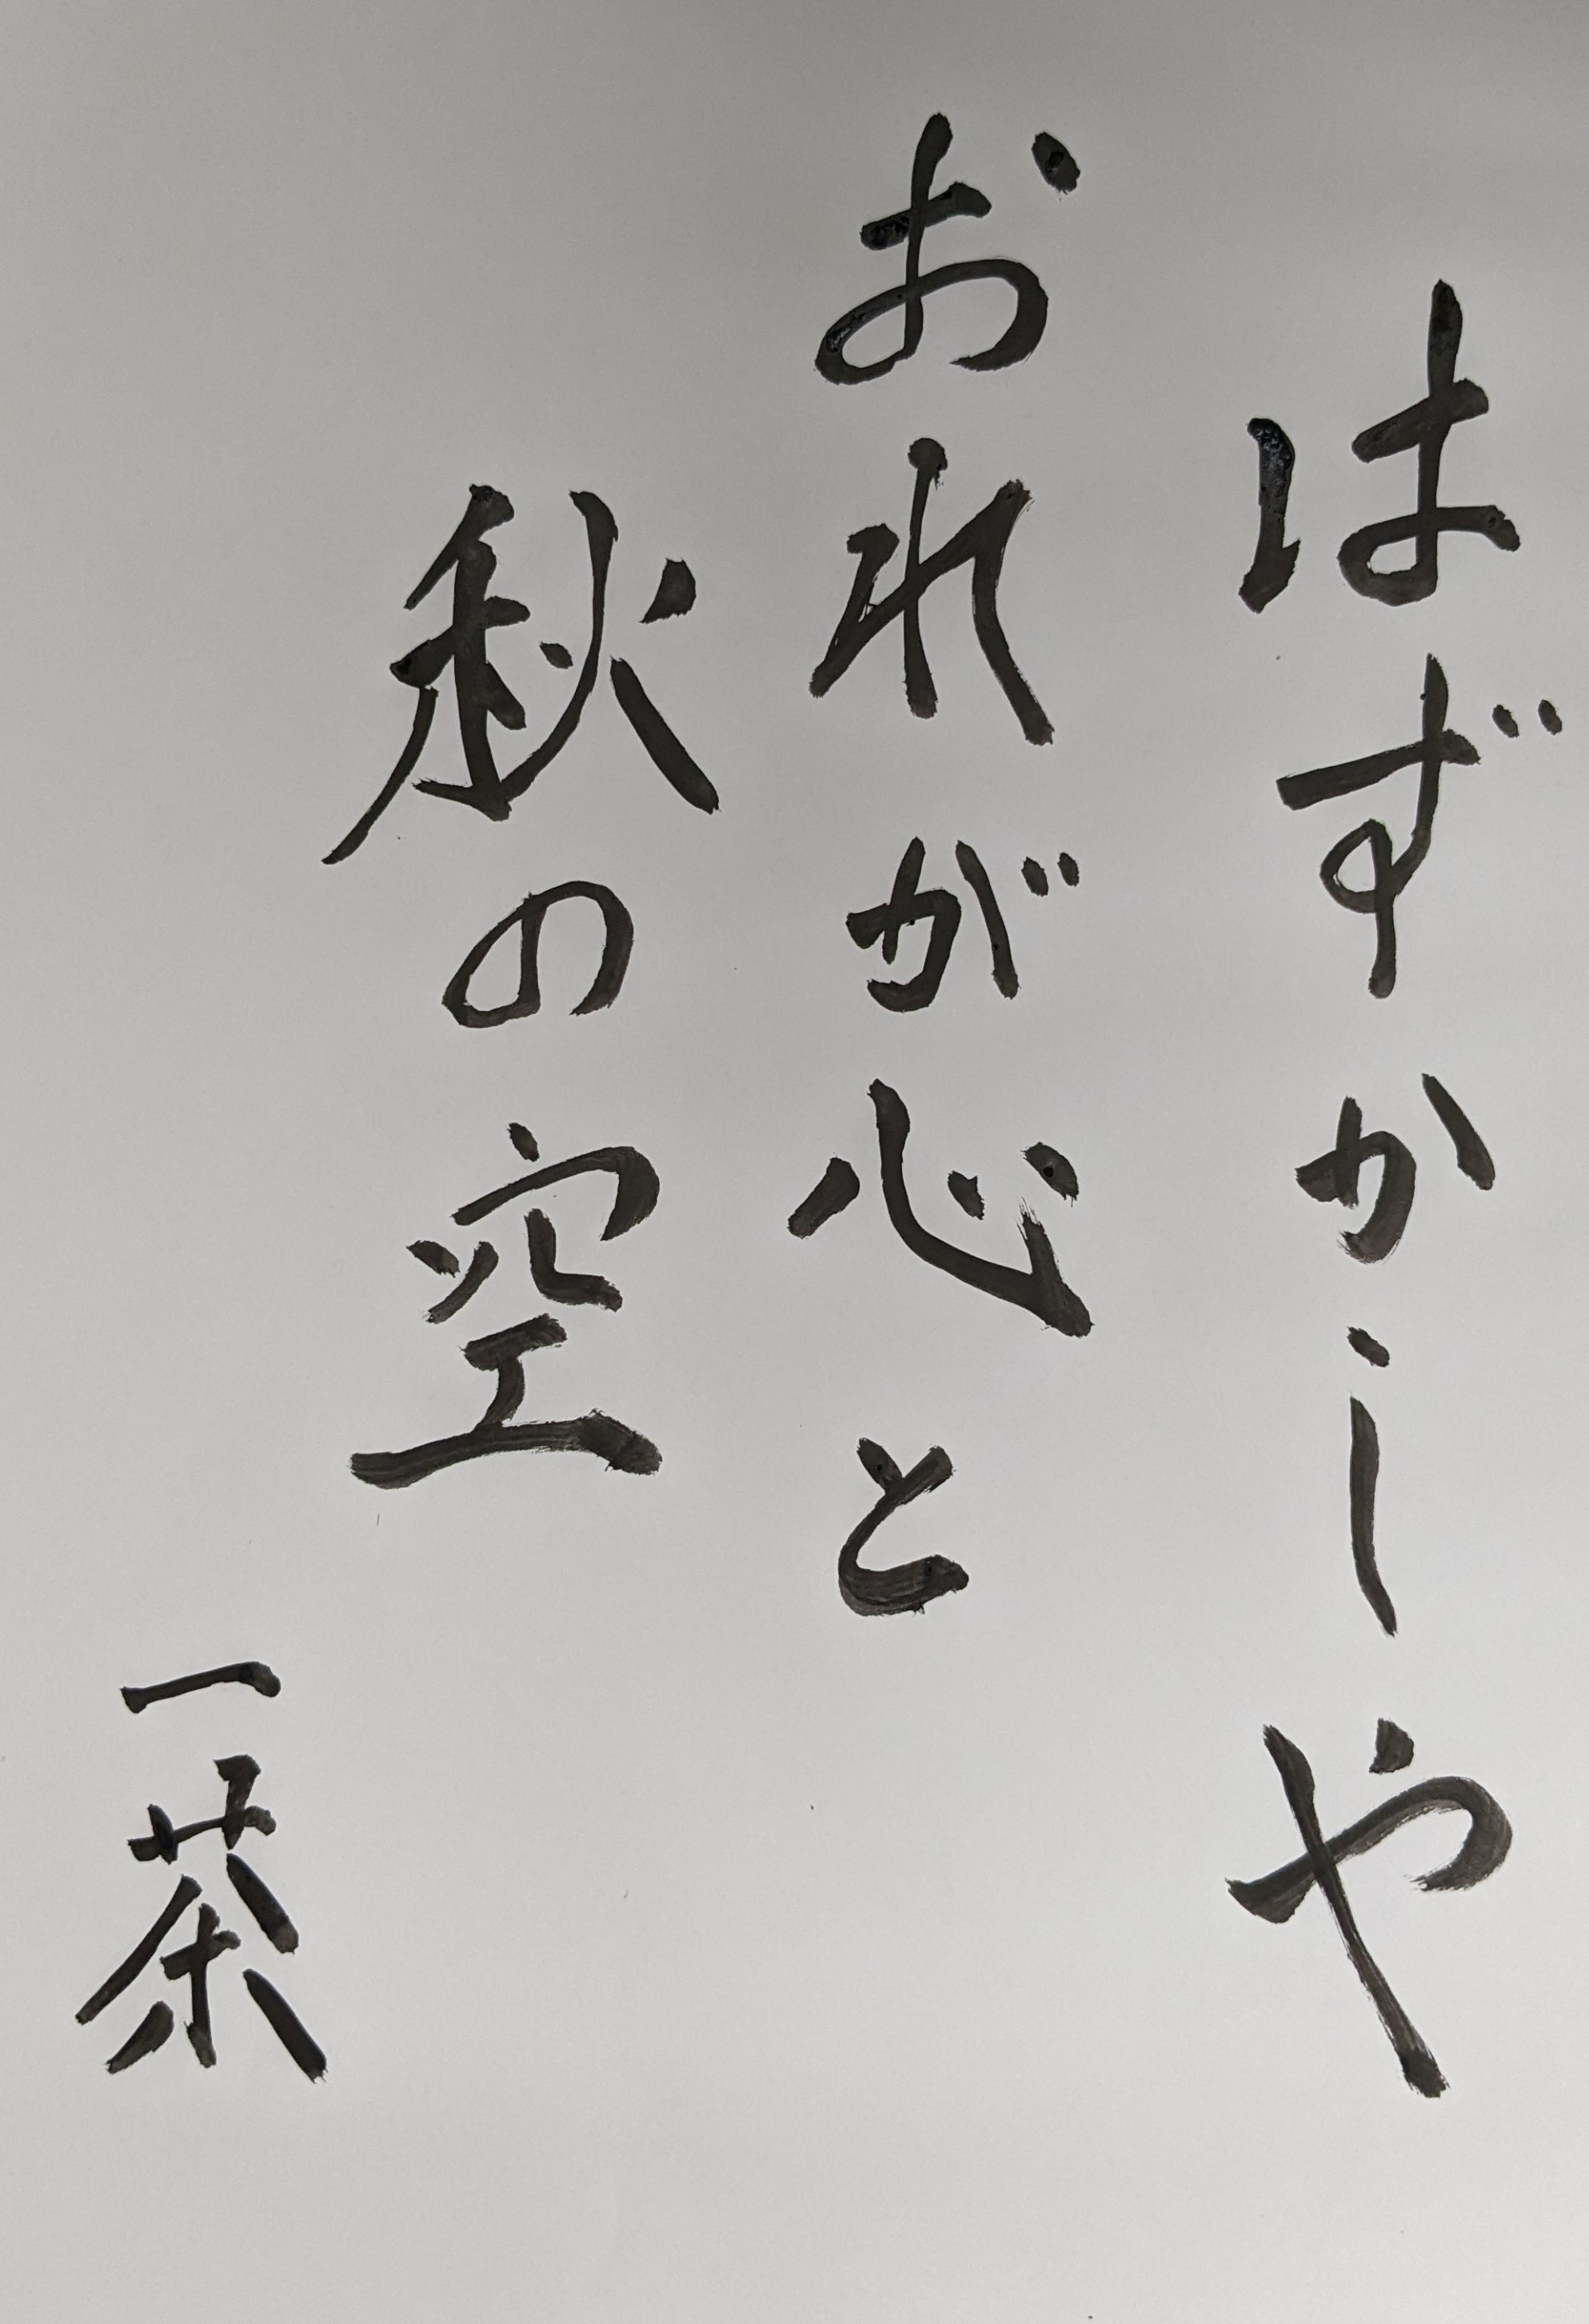 はずかしや
おれが心と
秋の空
一茶